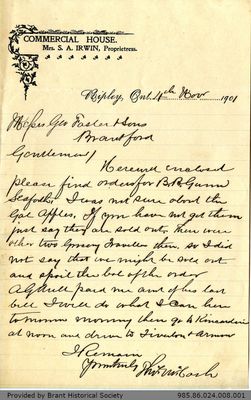 COMMERCIAL HOUSE.
Mrs. S. A. IRWIN, Proprietress.
Ripley, Ont. 4th Nov 1901
Messrs Geo Foster & Sons
Brantford
Gentlemen
Herewith enclosed
please find orders for B R Gunn
Seaforth, I was not sure about the
Gal Apples, If you have not got them
just say they are sold out. There were
other two Grocery Travellers there so I did
not say that we might be sold out
and spoil the bal of the order
paid me out of his last
bill I will do what I can here
tomorrow morning then go to Kincardine
at noon and drive to Tiverton &
I Remain
Yours truly
Provided by Brant Historical Society
985.86.024.008.001